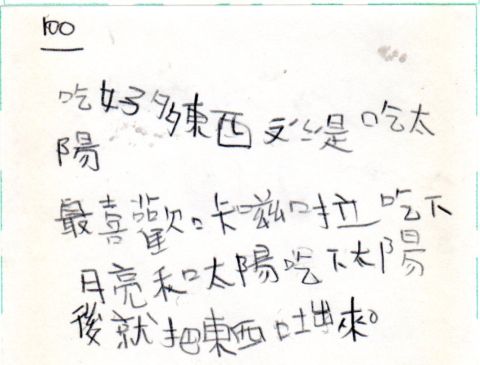 100
吃好多東西 还是吃太
陽
最喜歡卡嗞拉吃下
月亮和太陽吃下太陽
後就把東西吐出來。